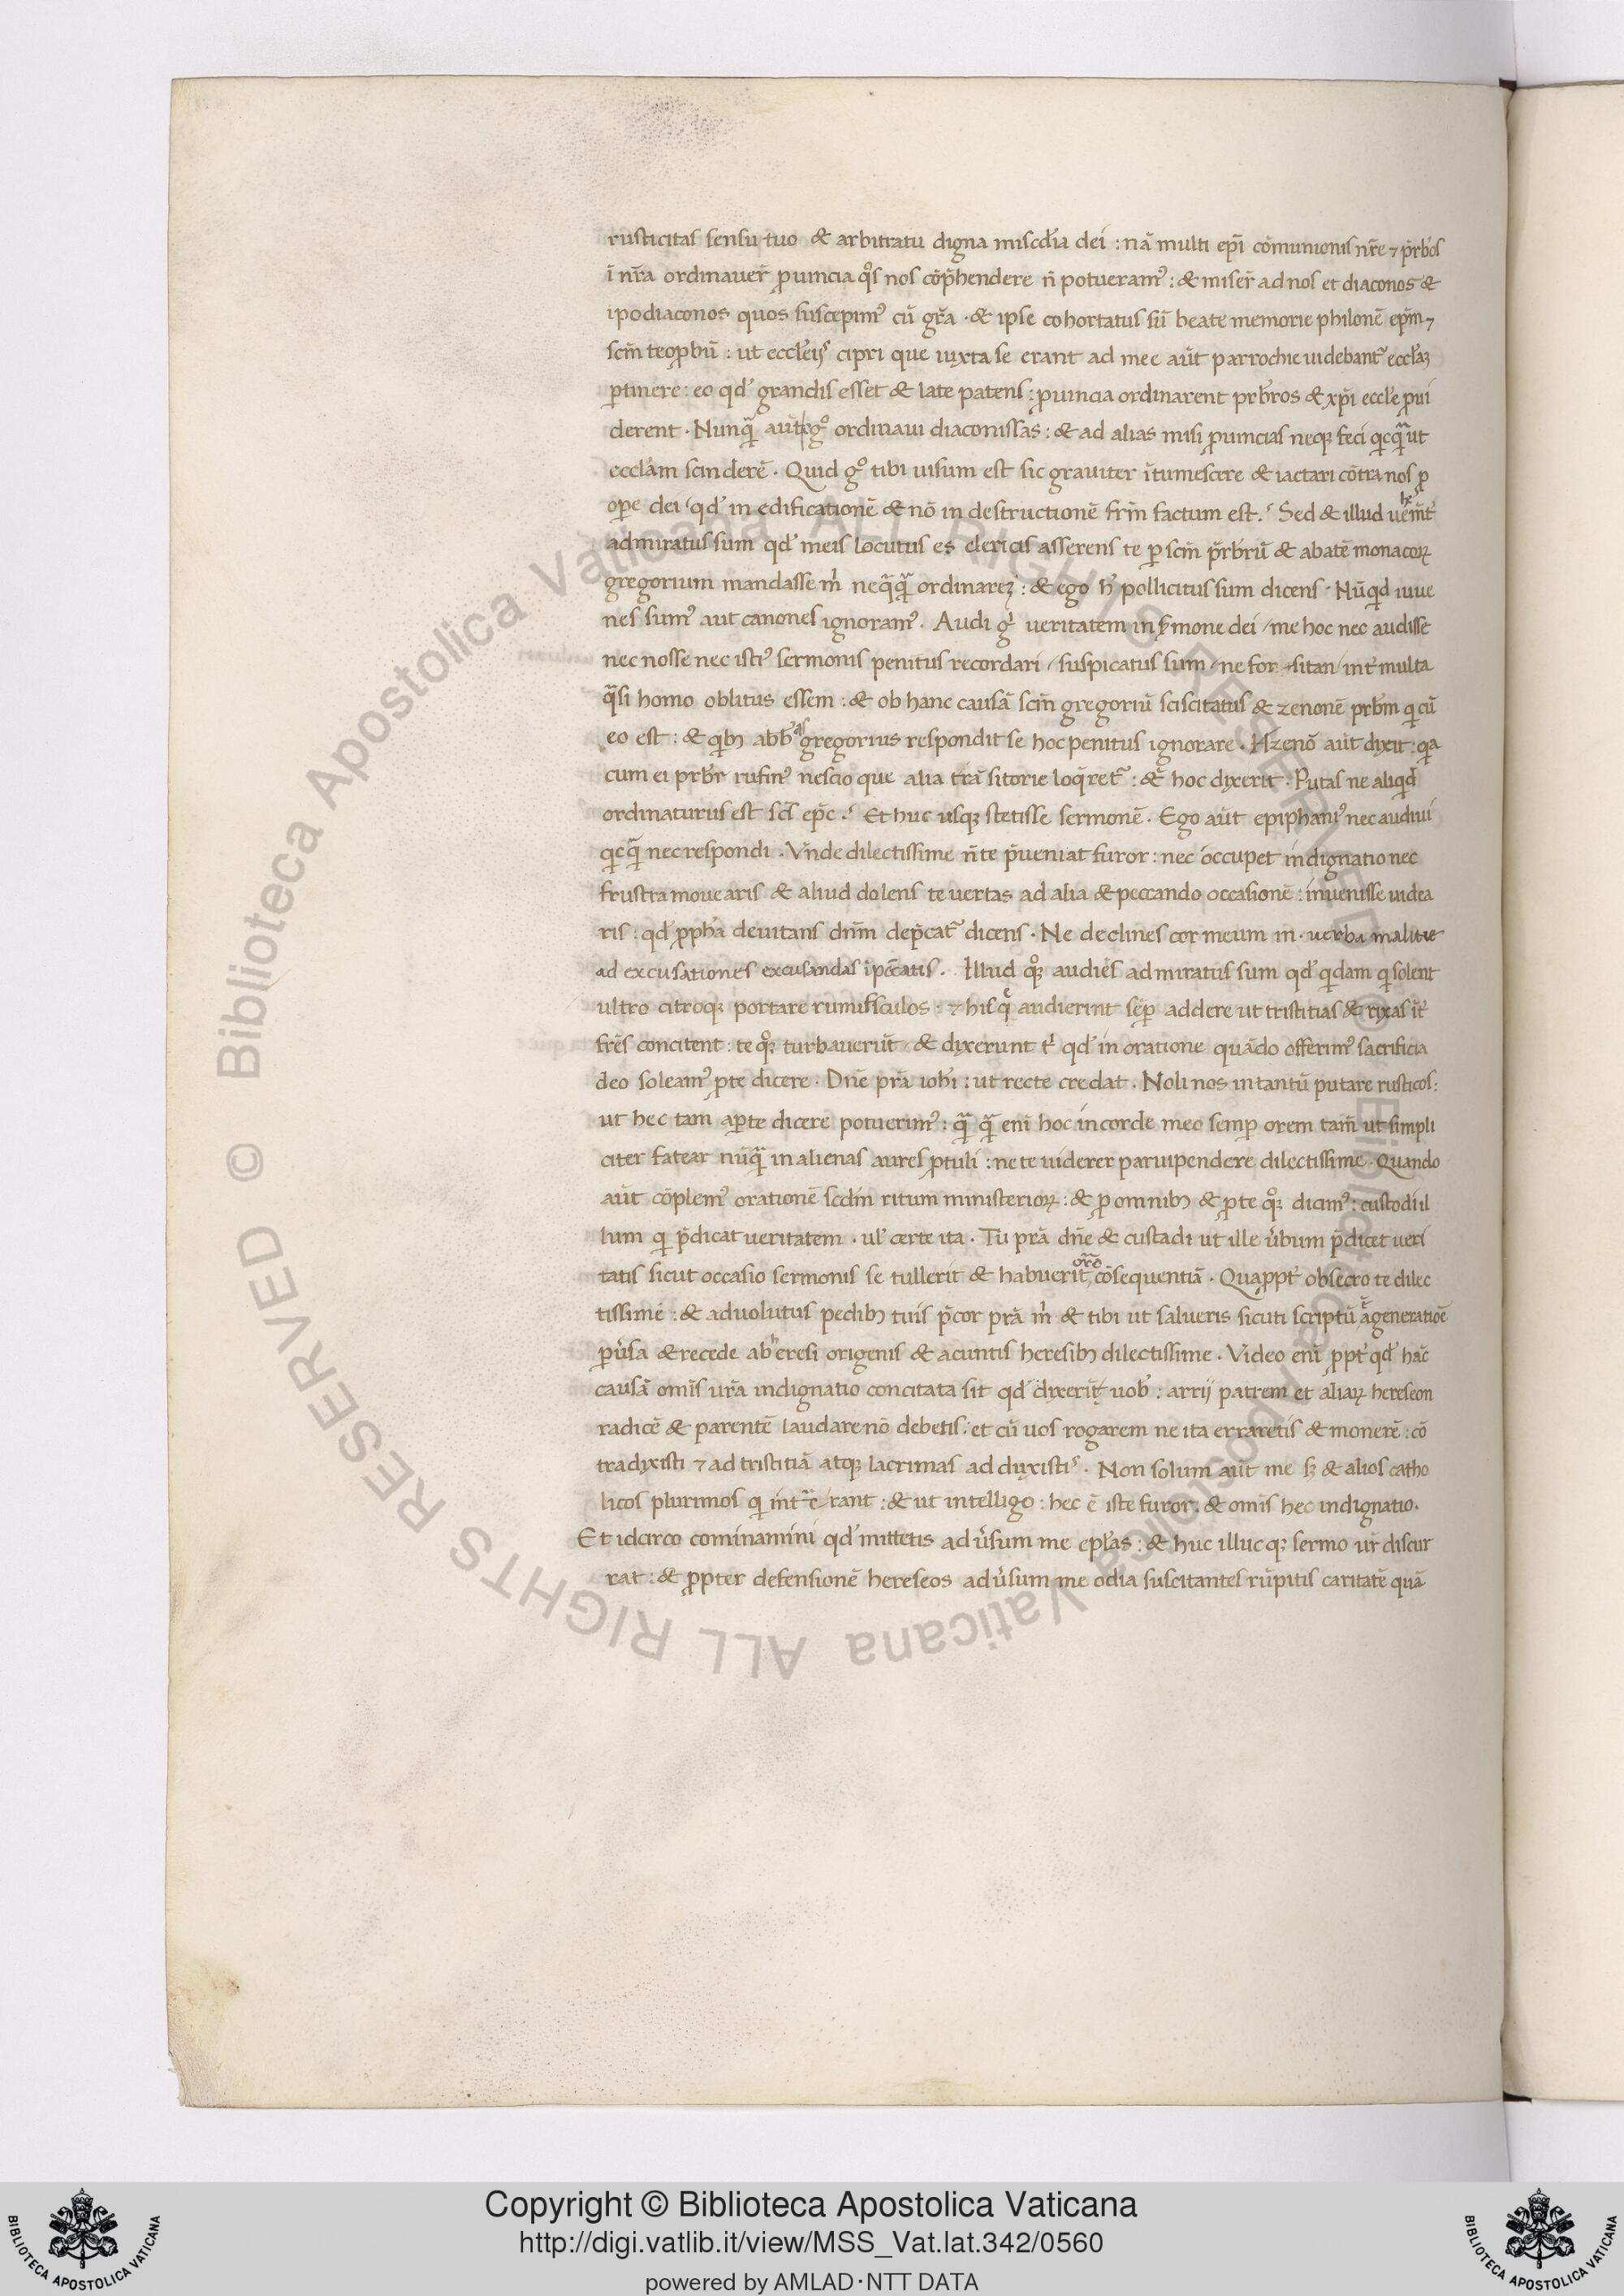 rusticitas sensu tuo & arbitratu digna miscđia dei : nā multi ep̄i cōmunionis nr̄e ⁊ p̄rbōs
ī nr̄a ordinauer̄ ꝓuincia qͦs nos cōp̄hendere n̄ potueramꝰ : & miser̄ ad nos et diaconos &
ipodiaconos quos suscepimꝰ cū gr̄a · & ipse cohortatus sū beate memorie philonē ep̄m ⁊
scm̄ teopbū : ut eccleijs cipri que iuxta se erant ad mee aūt parrochie uidebantᷣ eccl̄aꝝ
ꝑtinere : eo qđ grandis esset & late patens : ꝓuincia ordinarent prb̄ros & xp̄i eccl̄e ꝓui
derent · Nunqᷓ aūt gͦ ordinaui diaconissas : & ad alias misi ꝓuincias neqꝫ feci qͥcqᷓ ut
eccl̄am scinderē · Quid gͦ tibi uisum est sic grauiter ītumescere & iactari cōtra nos ꝓ
oꝑe dei qđ in edificationē & nō in destructionē frm̄ factum est · Sed & illud uehem̄t̄
admiratus sum qđ meis locutus es clericis asserens te ꝑ scm̄ p̄rbrū & abatē monacoꝝ
gregorium mandasse m̄ neqᷓqᷓ ordinareꝫ : & ego h̄ pollicitus sum dicens · Nūqͥd iuue
nes sumꝰ aut canones ignoramꝰ · Audi gͥ ueritatem in ẜmone dei / me hoc nec audisse
nec nosse nec istiꝰ sermonis penitus recordari / suspicatus sum / ne for sitan int̄ multa
qᷓsi homo oblitus essem : & ob hanc causā scm̄ gregoriū sciscitatus & zenonē prb̄m qͥ cū
eo est : & qͥbꝫ abb̄as gregorius respondit se hoc penitus ignorare · H zenō aūt dixit : qͥa
cum ei prb̄r rufinꝰ nescio que alia trāsitorie loqͥretᷣ : & hoc dyxerit · Putas ne aliqͥd
ordinaturus est scs̄ ep̄c · Et huc usqꝫ stetisse sermonē · Ego aūt epiphaniꝰ nec audiui
qͥcqᷓ nec respondi · Vnde dilectissime n̄ te p̄ueniat furor : nec occupet indignatio nec
frustra mouearis & aliud dolens te uertas ad alia & peccando occasionē : inuenisse uidea
ris : qđ ꝓpha deuitans dn̄m dep̄catᷣ dicens · Ne declines cor meum in uerba malitie
ad excusationes excusandas ī pc̄catis · Illud qͦꝫ audiēs admiratus sum qđ qͥdam qͥ solent
ultro citroqꝫ portare rumusculos · ⁊ his q̄ audierint sēꝑ addere ut tristitias & rixas īt̄
frēs concitent : te qͦꝫ turbauerūt · & dyxerunt tͥ qđ in oratione quādo offerimꝰ sacrificia
deo soleamꝰ ꝓ te dicere · Dn̄e prā ioh̄i : ut recte credat · Noli nos in tantū putare rusticos :
ut hec tam aꝑte dicere potuerimꝰ : qᷓ qᷓ eni hoc in corde meo semꝑ orem tam̄ ut simpli
citer fatear nūqᷓ in alienas aures ꝓtuli : ne te uiderer paruipendere dilectissime · Quando
aūt cōplemꝰ orationē scdm̄ ritum ministerioꝝ : & ꝓ omnibꝫ & ꝓ te qͦꝫ dicimꝰ : custodi il
lum qͥ p̄dicat ueritatem · ul̓ certe ita · Tu prā dn̄e & custadi ut ille ūbum p̄dicet ueri
tatis sicut occasio sermonis se tullerit & habuerit or̄o cōsequentiā · Quaꝓpt̄ obsecro te dilec
tissime : & aduolutus pedibꝫ tuis p̄cor prā m̄ & tibi ut salueris sicuti scriptū ē a generatiōe
ꝑūsa & recede ab heresi origenis & acuntis heresibꝫ dilectissime · Video eni ꝓpt̄ qđ hāc
causā omīs ur̄a indignatio concitata sit qđ dyxerīt uob̄ : arrij patrem et aliaꝝ hereseon
radicē & parentē laudare nō debetis : et cū uos rogarem ne ita erraretis & monerē : cō
tradyxisti ⁊ ad tristitiā atqꝫ lacrimas adduxistis · Non solum aūt me sꝫ & alios catho
licos plurimos qͥ int̄erant : & ut intelligo : hec ē iste furor : & omīs hec indignatio ·
Et idcirco cominamini qđ mittetis adūsum me epl̄as : & huc illucqꝫ sermo ur̄ discur
rat : & ꝓpter defensionē hereseos adūsum me odia suscitantes rūpitis caritatē quā
Copyright © Biblioteca Apostolica Vaticana
http://digi.vatlib.it/view/MSS_Vat.lat.342/0560
powered by AMLAD·NTT DATA
BIBLIOTECA APOSTOLICA VATICANA
BIBLIOTECA APOSTOLICA VATICANA
© Biblioteca Apostolica Vaticana ALL RIGHTS RESERVED
© Biblioteca Apostolica Vaticana ALL RIGHTS RESERVED